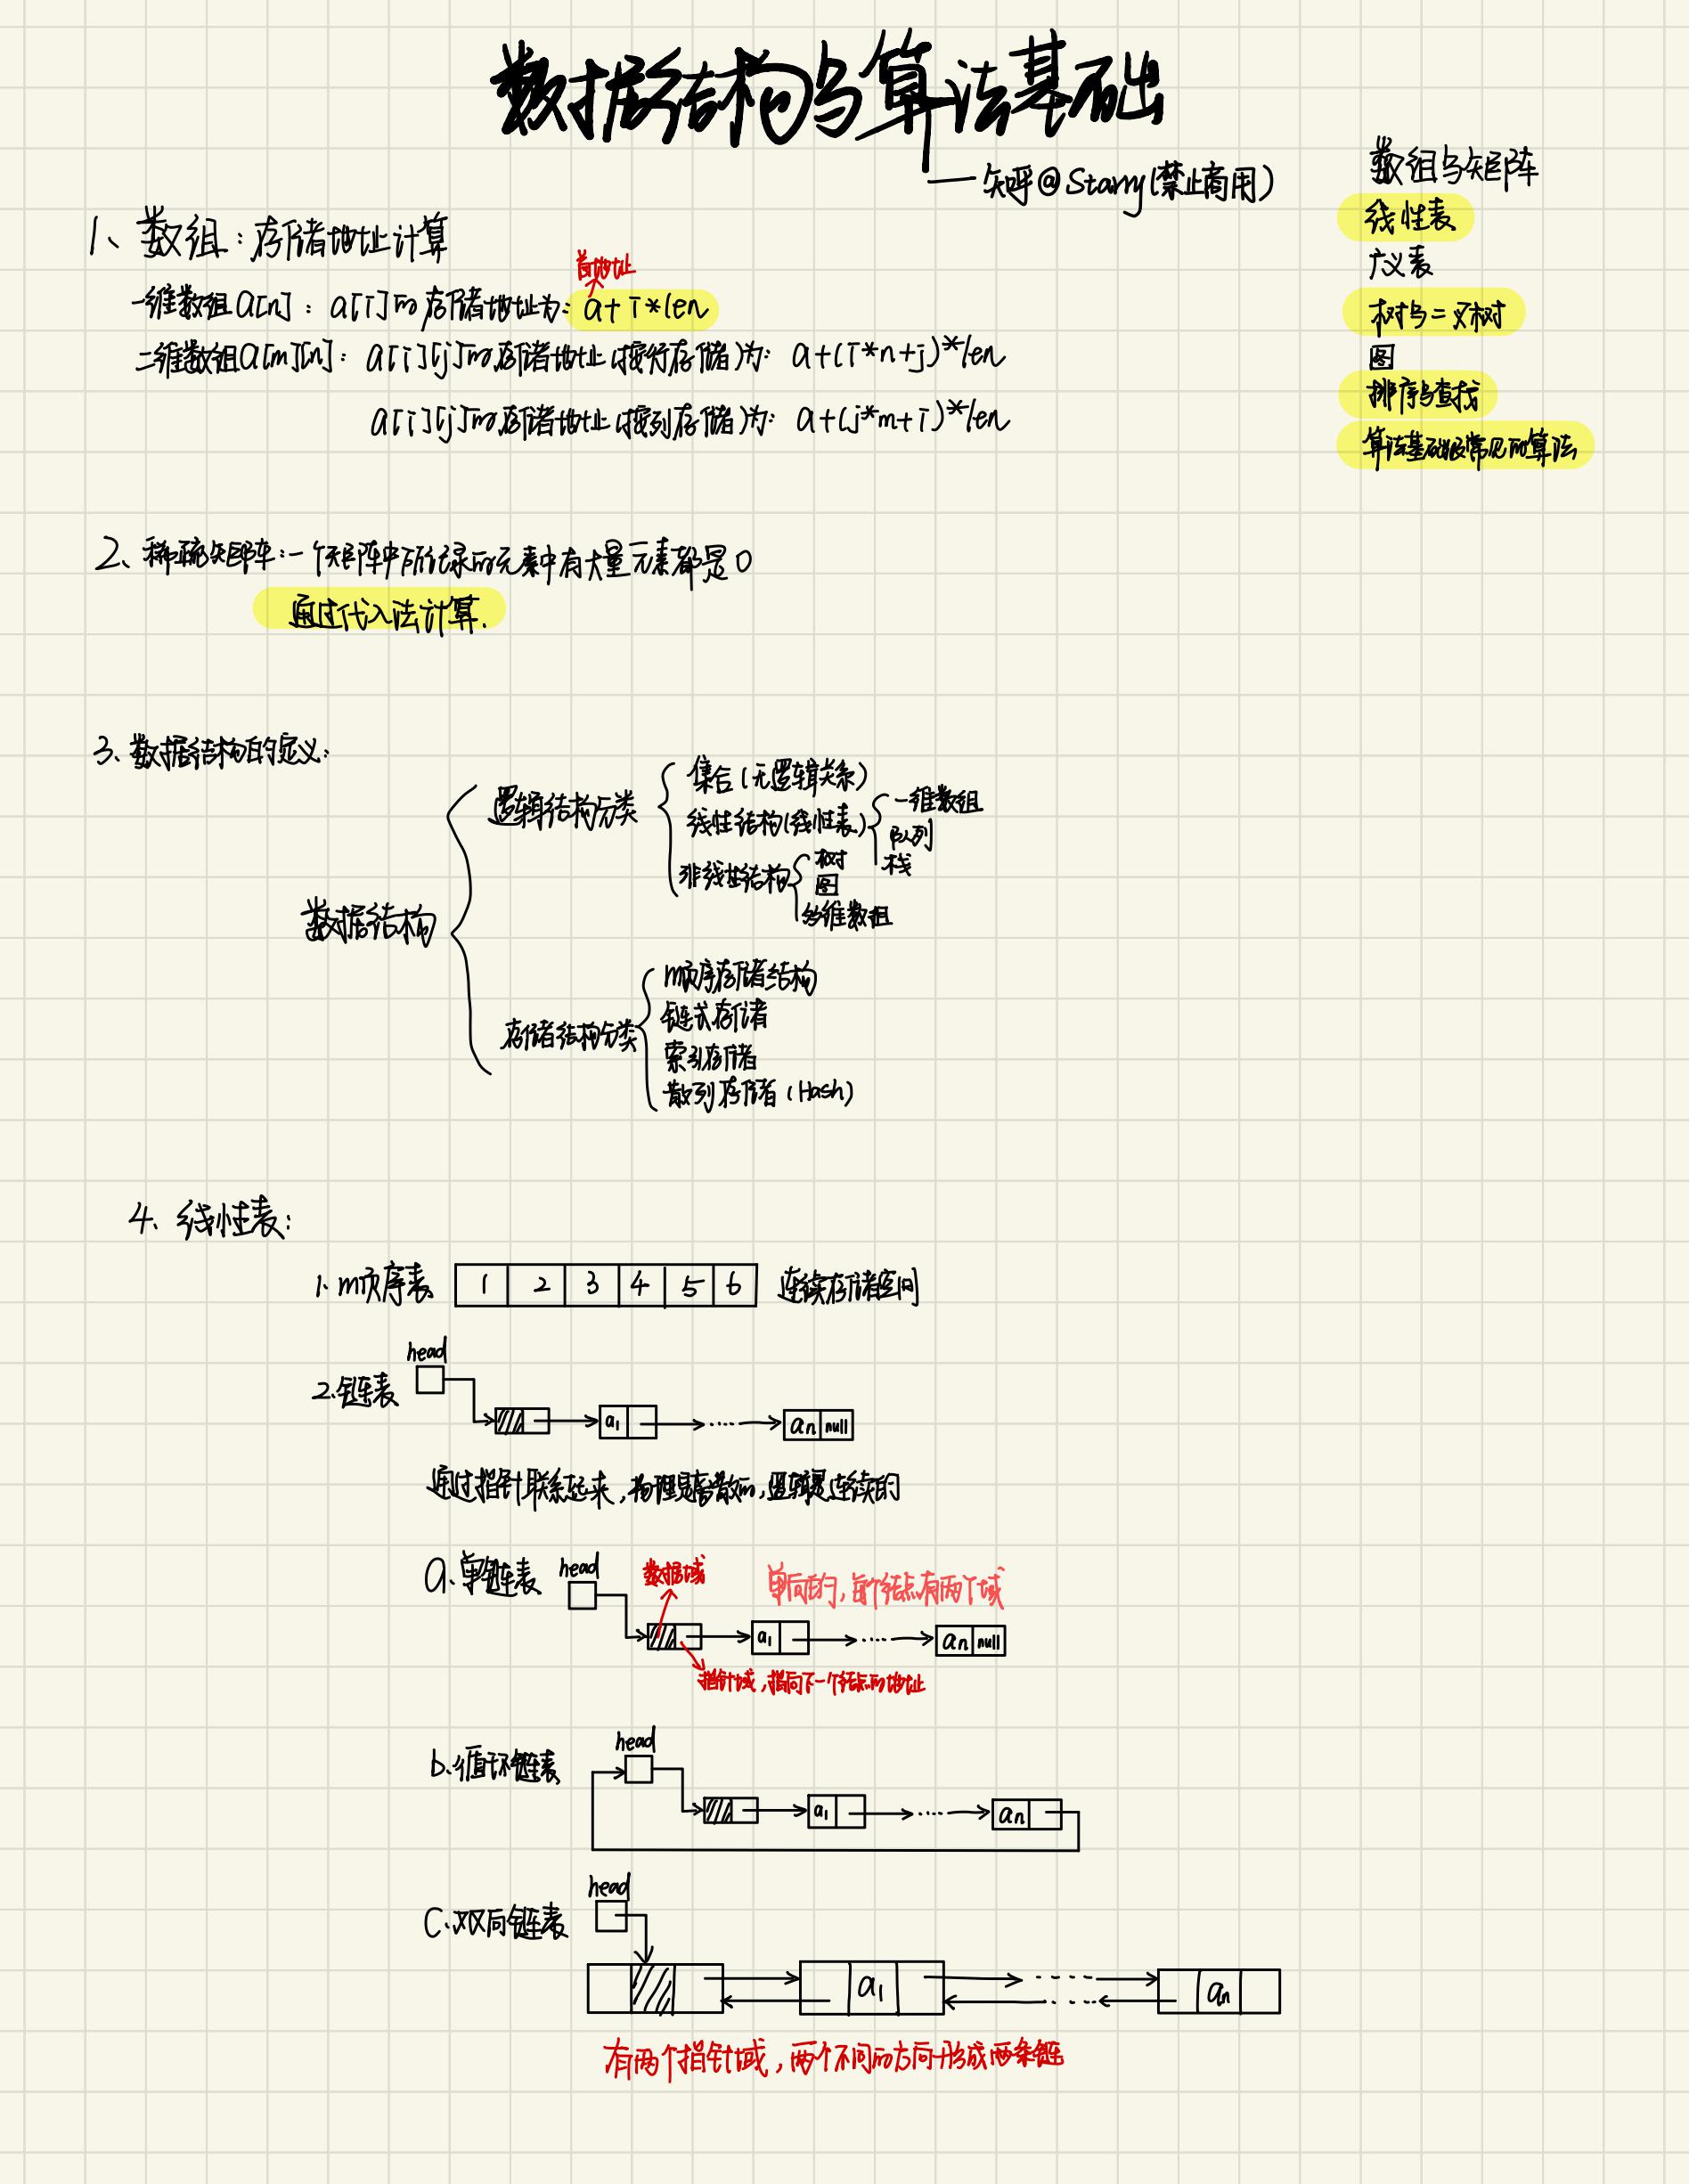 数据结构与算法基础
——知乎@Starry(禁止商用)
数组与矩阵
线性表
广义表
树与二叉树
图
排序与查找
算法基础及常见的算法
1、数组：存储地址计算
首地址
一维数组a[n]：a[i]的存储地址为：a+i*len
二维数组a[m][n]：a[i][j]的存储地址(按行存储)为：a+(i*n+j)*len
a[i][j]的存储地址(按列存储)为：a+(j*m+i)*len
2、稀疏矩阵：一个矩阵中所记录的元素中有大量元素都是0
通过代入法计算.
3、数据结构的定义：
数据结构
逻辑结构分类
集合(无逻辑关系)
线性结构(线性表)
一维数组
队列
栈
非线性结构
树
图
多维数组
存储结构分类
顺序存储结构
链式存储
索引存储
散列存储(Hash)
4、线性表：
1.顺序表 1 2 3 4 5 6 连续存储空间
head
2.链表
a1 ..... an null
通过指针联系起来，物理是离散的，逻辑是连续的
a.单链表 head 数据域 单向的，每个结点有两个域
a1 ..... an null
指针域，指向下一个结点的地址
head
b.循环链表
a1 ..... an
head
c.双向链表
a1 ..... an
有两个指针域，两个不同的方向形成两条链